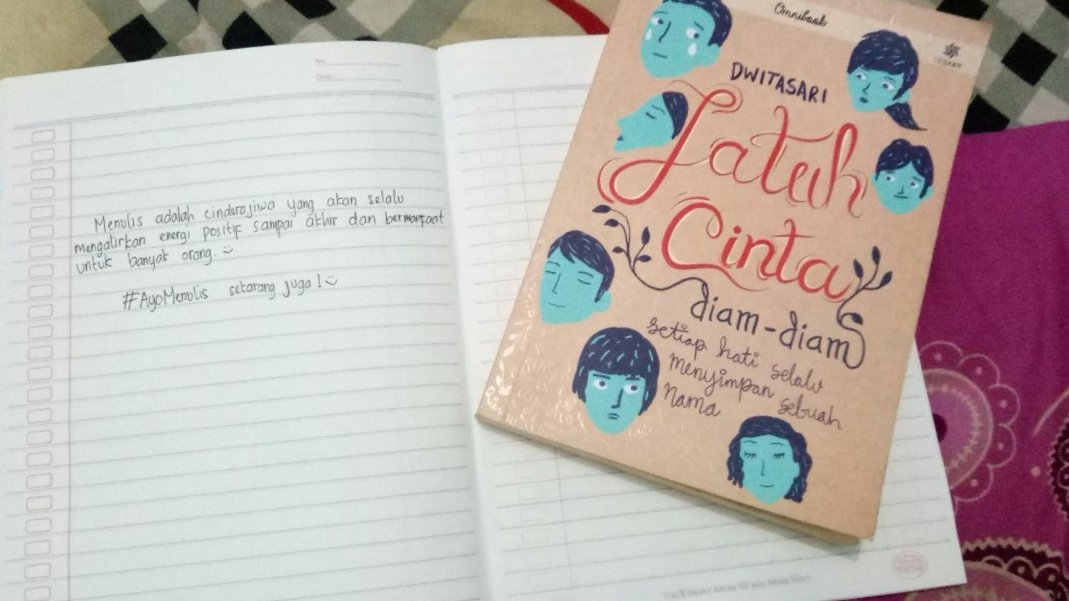 Menulis adalah cinderajiwa yang akan selalu
mengalirkan energi positif sampai akhir dan bermanfaat
untuk banyak orang.
#AyoMenulis sekarang juga!
No.
Date.
Omnibook
DWITASARI
Jatuh
Cinta
diam-diam
setiap hati selalu
menyimpan sebuah
nama